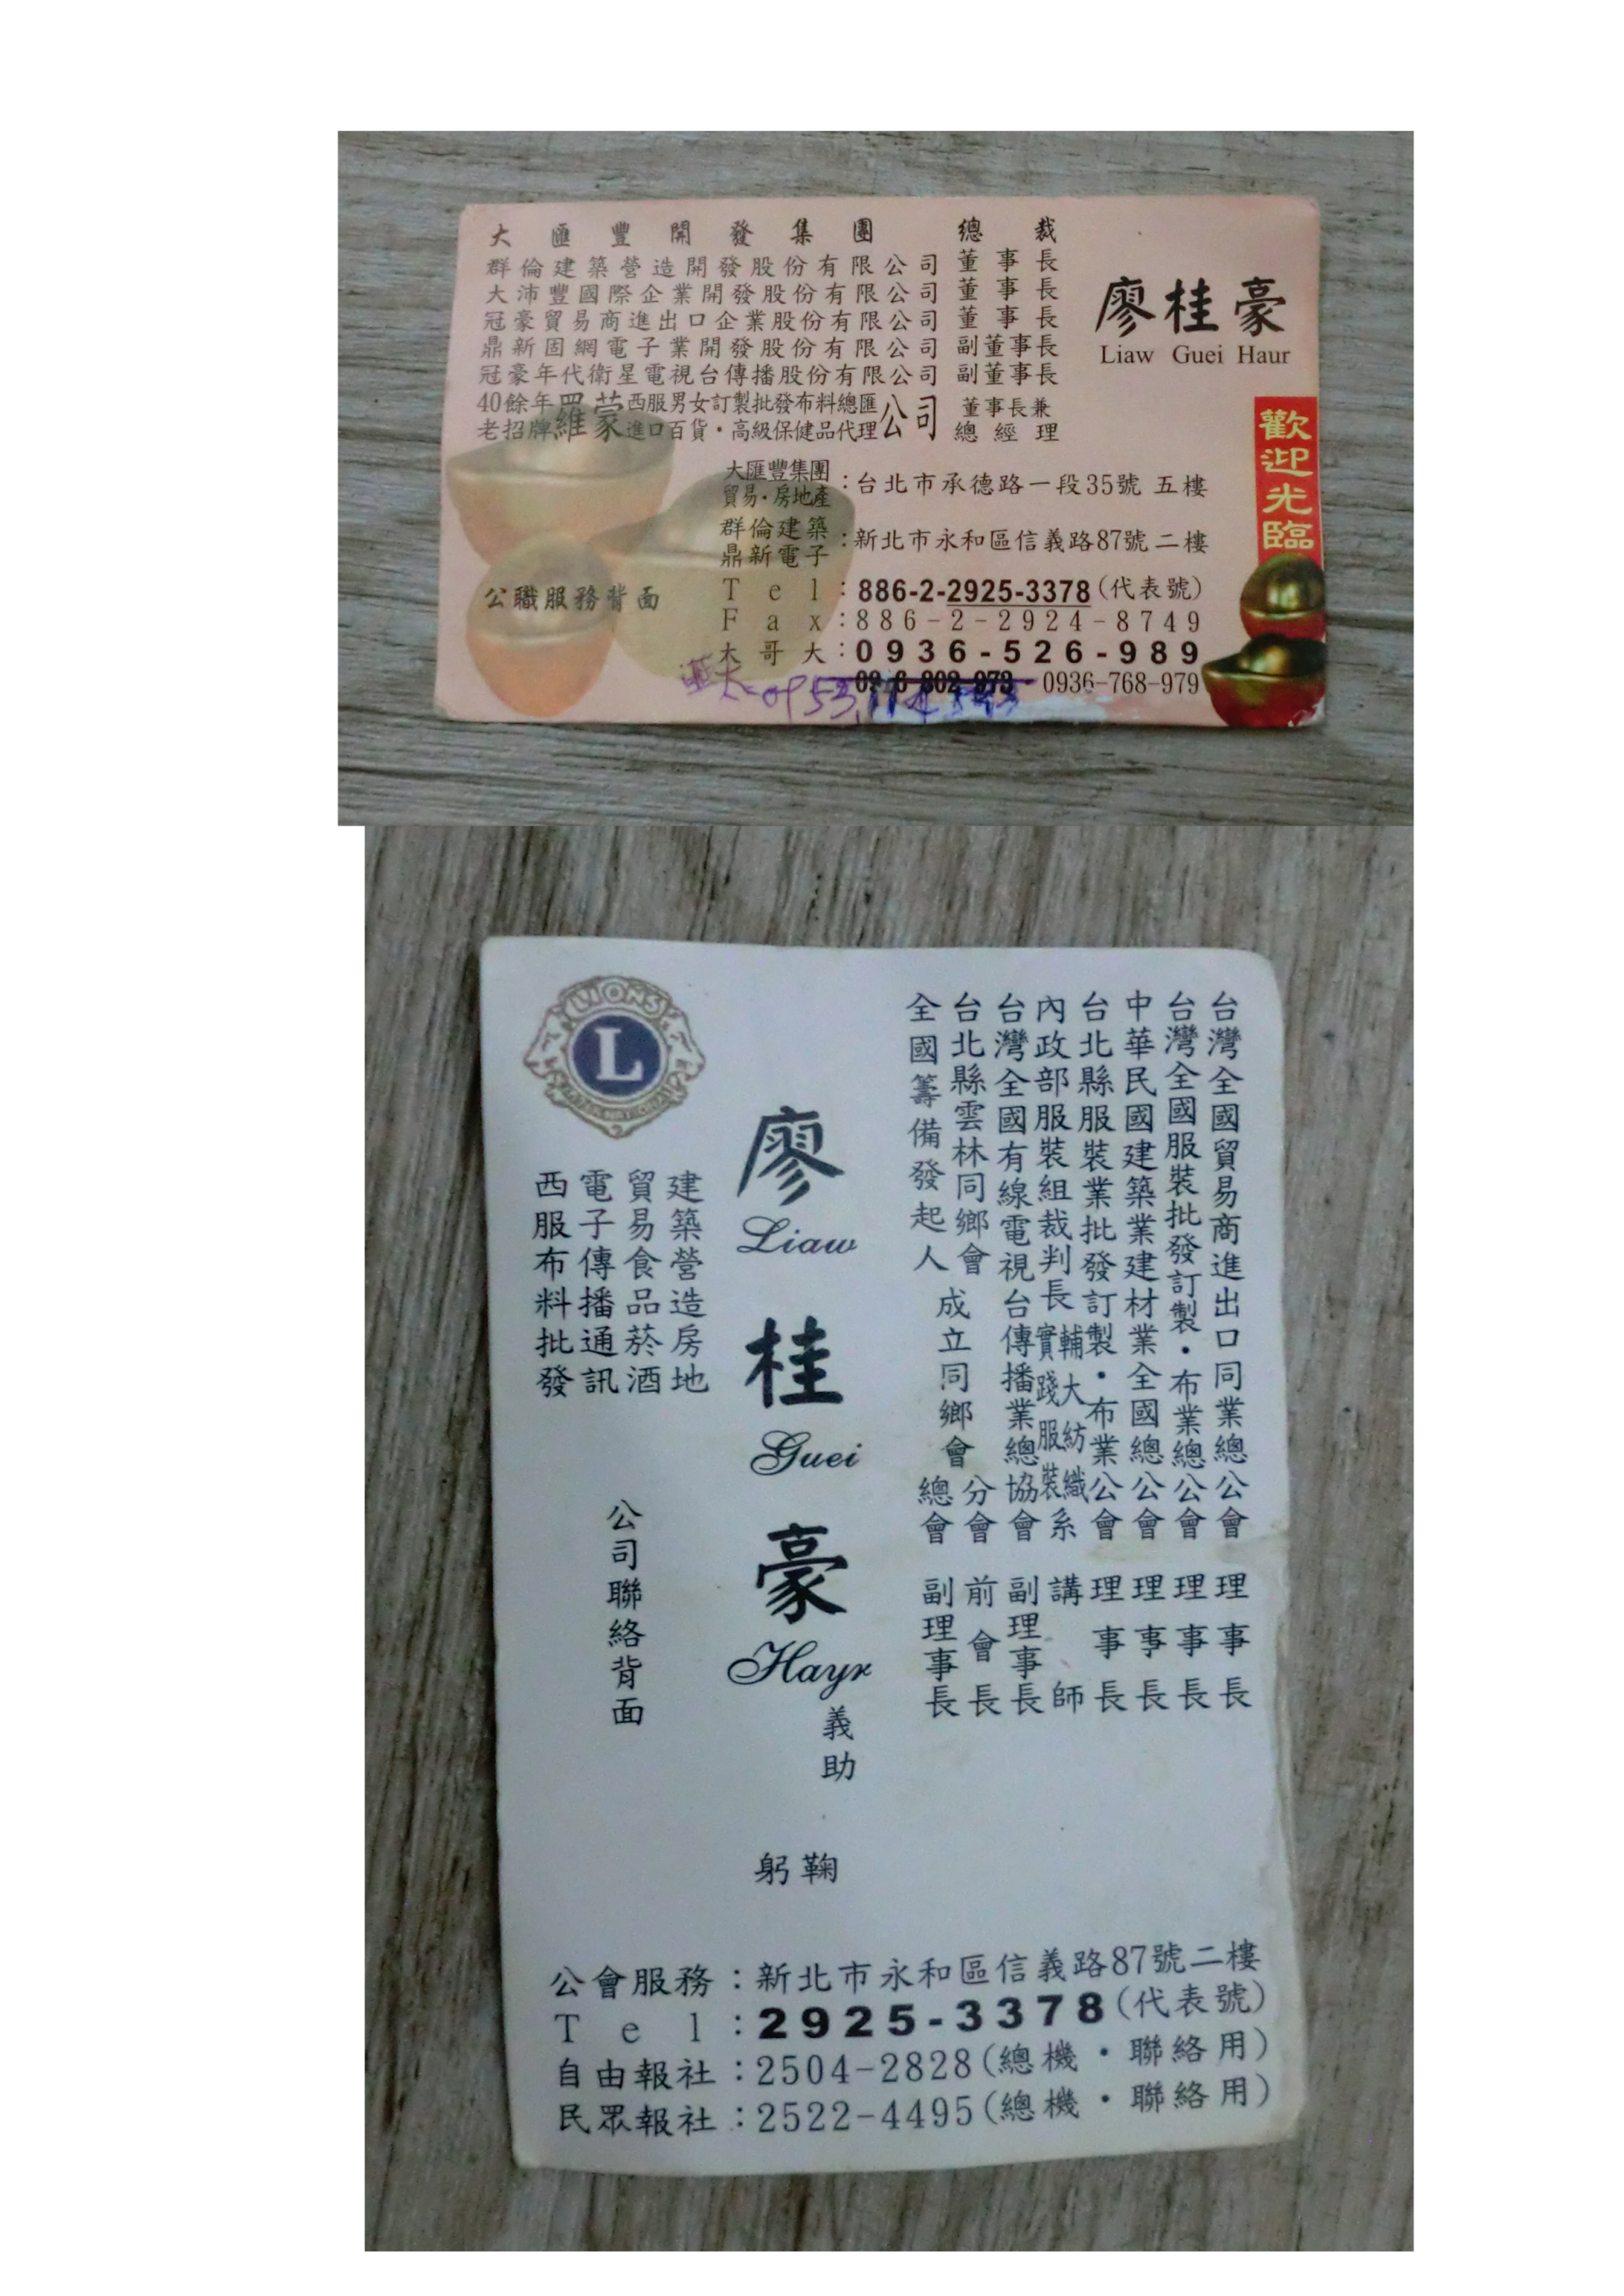 大匯豐開發集團 總裁
群倫建築營造開發股份有限公司 董事長
大沛豐國際企業開發股份有限公司 董事長
冠豪貿易商進出口企業股份有限公司 董事長
鼎新固網電子業開發股份有限公司 副董事長
冠豪年代衛星電視台傳播股份有限公司 副董事長
40餘年老招牌 羅蒙 西服男女訂製批發布料總匯 進口百貨・高級保健品代理 公司 董事長兼總經理
廖桂豪
Liaw Guei Haur
歡迎光臨
大匯豐集團
貿易・房地產
:台北市承德路一段35號 五樓
群倫建築
鼎新電子
:新北市永和區信義路87號 二樓
公職服務背面
Tel:886-2-2925-3378(代表號)
Fax:886-2-2924-8749
大哥大:0936-526-989
0936-768-979
LIONS
L
INTERNATIONAL
台灣全國貿易商進出口同業總公會 理事長
台灣全國服裝批發訂製・布業總公會 理事長
中華民國建築業建材業全國總公會 理事長
台北縣服裝業批發訂製・布業公會 理事長
內政部服裝組裁判長 輔大紡織 實踐服裝 系 講師
台灣全國有線電視台傳播業總協會 副理事長
台北縣雲林同鄉會 分會 前會長
全國籌備發起人 成立同鄉會 總會 副理事長
廖 桂 豪
Liaw Guei Hayr
義助
鞠躬
建築營造房地
貿易食品菸酒
電子傳播通訊
西服布料批發
公司聯絡背面
公會服務:新北市永和區信義路87號二樓
Tel:2925-3378(代表號)
自由報社:2504-2828(總機・聯絡用)
民眾報社:2522-4495(總機・聯絡用)